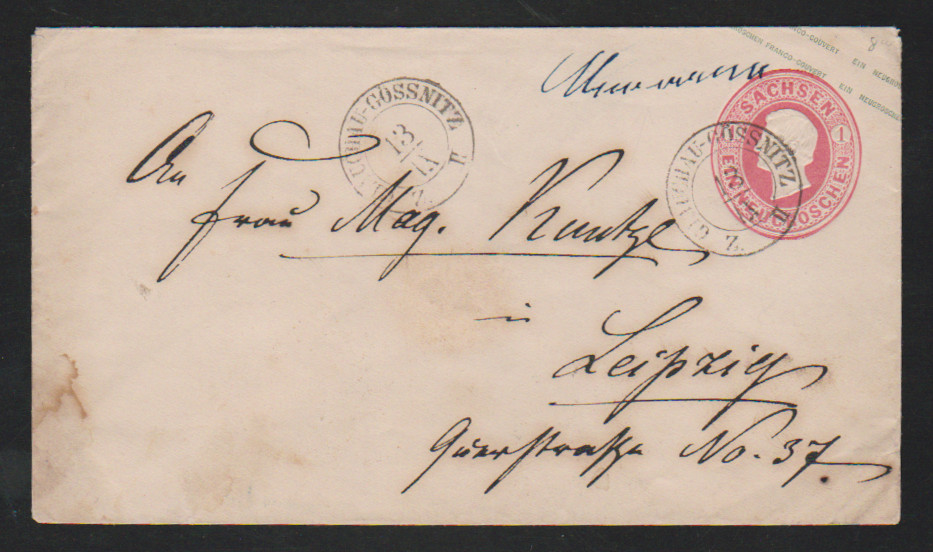 EIN NEUGROSCHEN FRANCO-COUVERT EIN NEUGROSCHEN
8
SACHSEN
1
EIN NEUGROSCHEN
GLAUCHAU-GÖSSNITZ
13
VI
Z. II
GLAUCHAU-GÖSSNITZ
Z. II
An
Frau Mag. Kuntze
in
Leipzig
Querstraße No. 37.